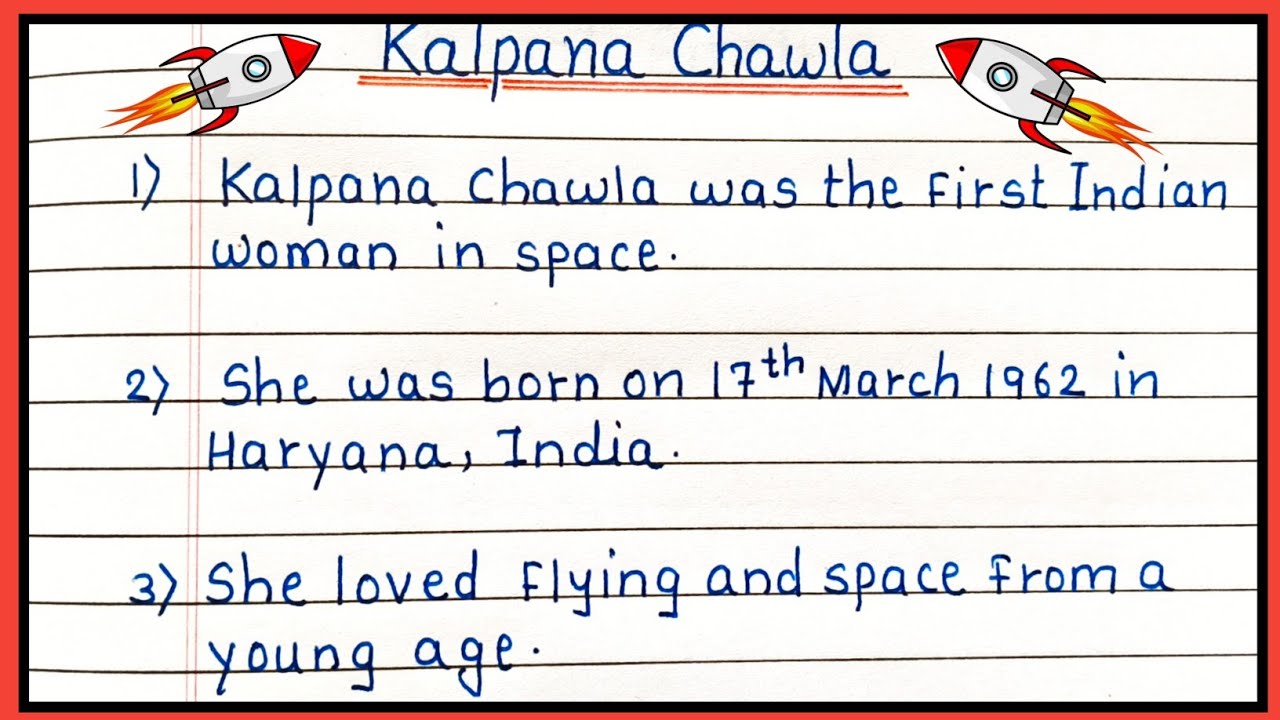 Kalpana Chawla
1) Kalpana Chawla was the First Indian
woman in space.
2) She was born on 17th March 1962 in
Haryana, India.
3) She loved Flying and space From a
young age.